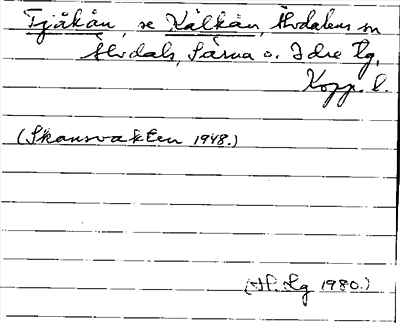 Tjåkån, se Kålkån, Älvdalens sn
Älvdals, Särna o. Idre tg,
Kopp. l.
(Skansvakten 1948.)
(H. Lg 1980.)